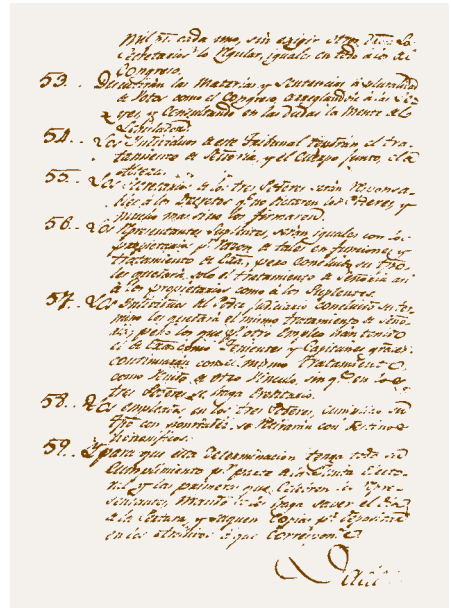 mil p.s cada uno, sin exigir otros
Secretarios lo Regular, iguales en todo a los de
Congreso.
53. Discutirán las Materias, y Sentencias, a pluralidad
de Votos como el Congreso, arreglandose a las Le-
yes, y Consultando en las dudas la Mente del
Legislador.
54. Los Individuos de este Tribunal tendrán el tra-
tamiento de Señoria, y el Cuerpo junto, el de
Alteza.
55. Los Secretarios de los tres Poderes serán responsa-
bles a los Decretos q.e no dictaren los Poderes, y
mucho mas si no los firmaren.
56. Los Representantes Suplentes, serán iguales con los
propietarios p.r razon de tales en funciones y
tratamiento de Exa, pero concluido su
les quedará solo el tratamiento de Señoria asi
a los propietarios como a los Suplentes.
57. Los Individuos del Poder Judiciario concluido su ter-
mino les quedará el mismo tratamiento de seño-
ria; pero los que p.r otro Empleo han tenido
el de Exa como Tenientes y Capitanes grales
continuarán con el mismo tratamiento
como de otro Vinculo, sin q.e en los
tres Poderes se haga
58. Los empleados en los tres Poderes, cumplido su
tpo con se retirarán con destinos
beneficos.
59. Y para que esta Determinacion tenga todo su
Cumplimiento p.r parte de la Junta Electo-
ral y las primeras que Celebren los Repre-
sentantes, Mando se les haga saver el dia
de la Apertura, y saquen Copias p.a depositar
en los archivos a que Corresponde.